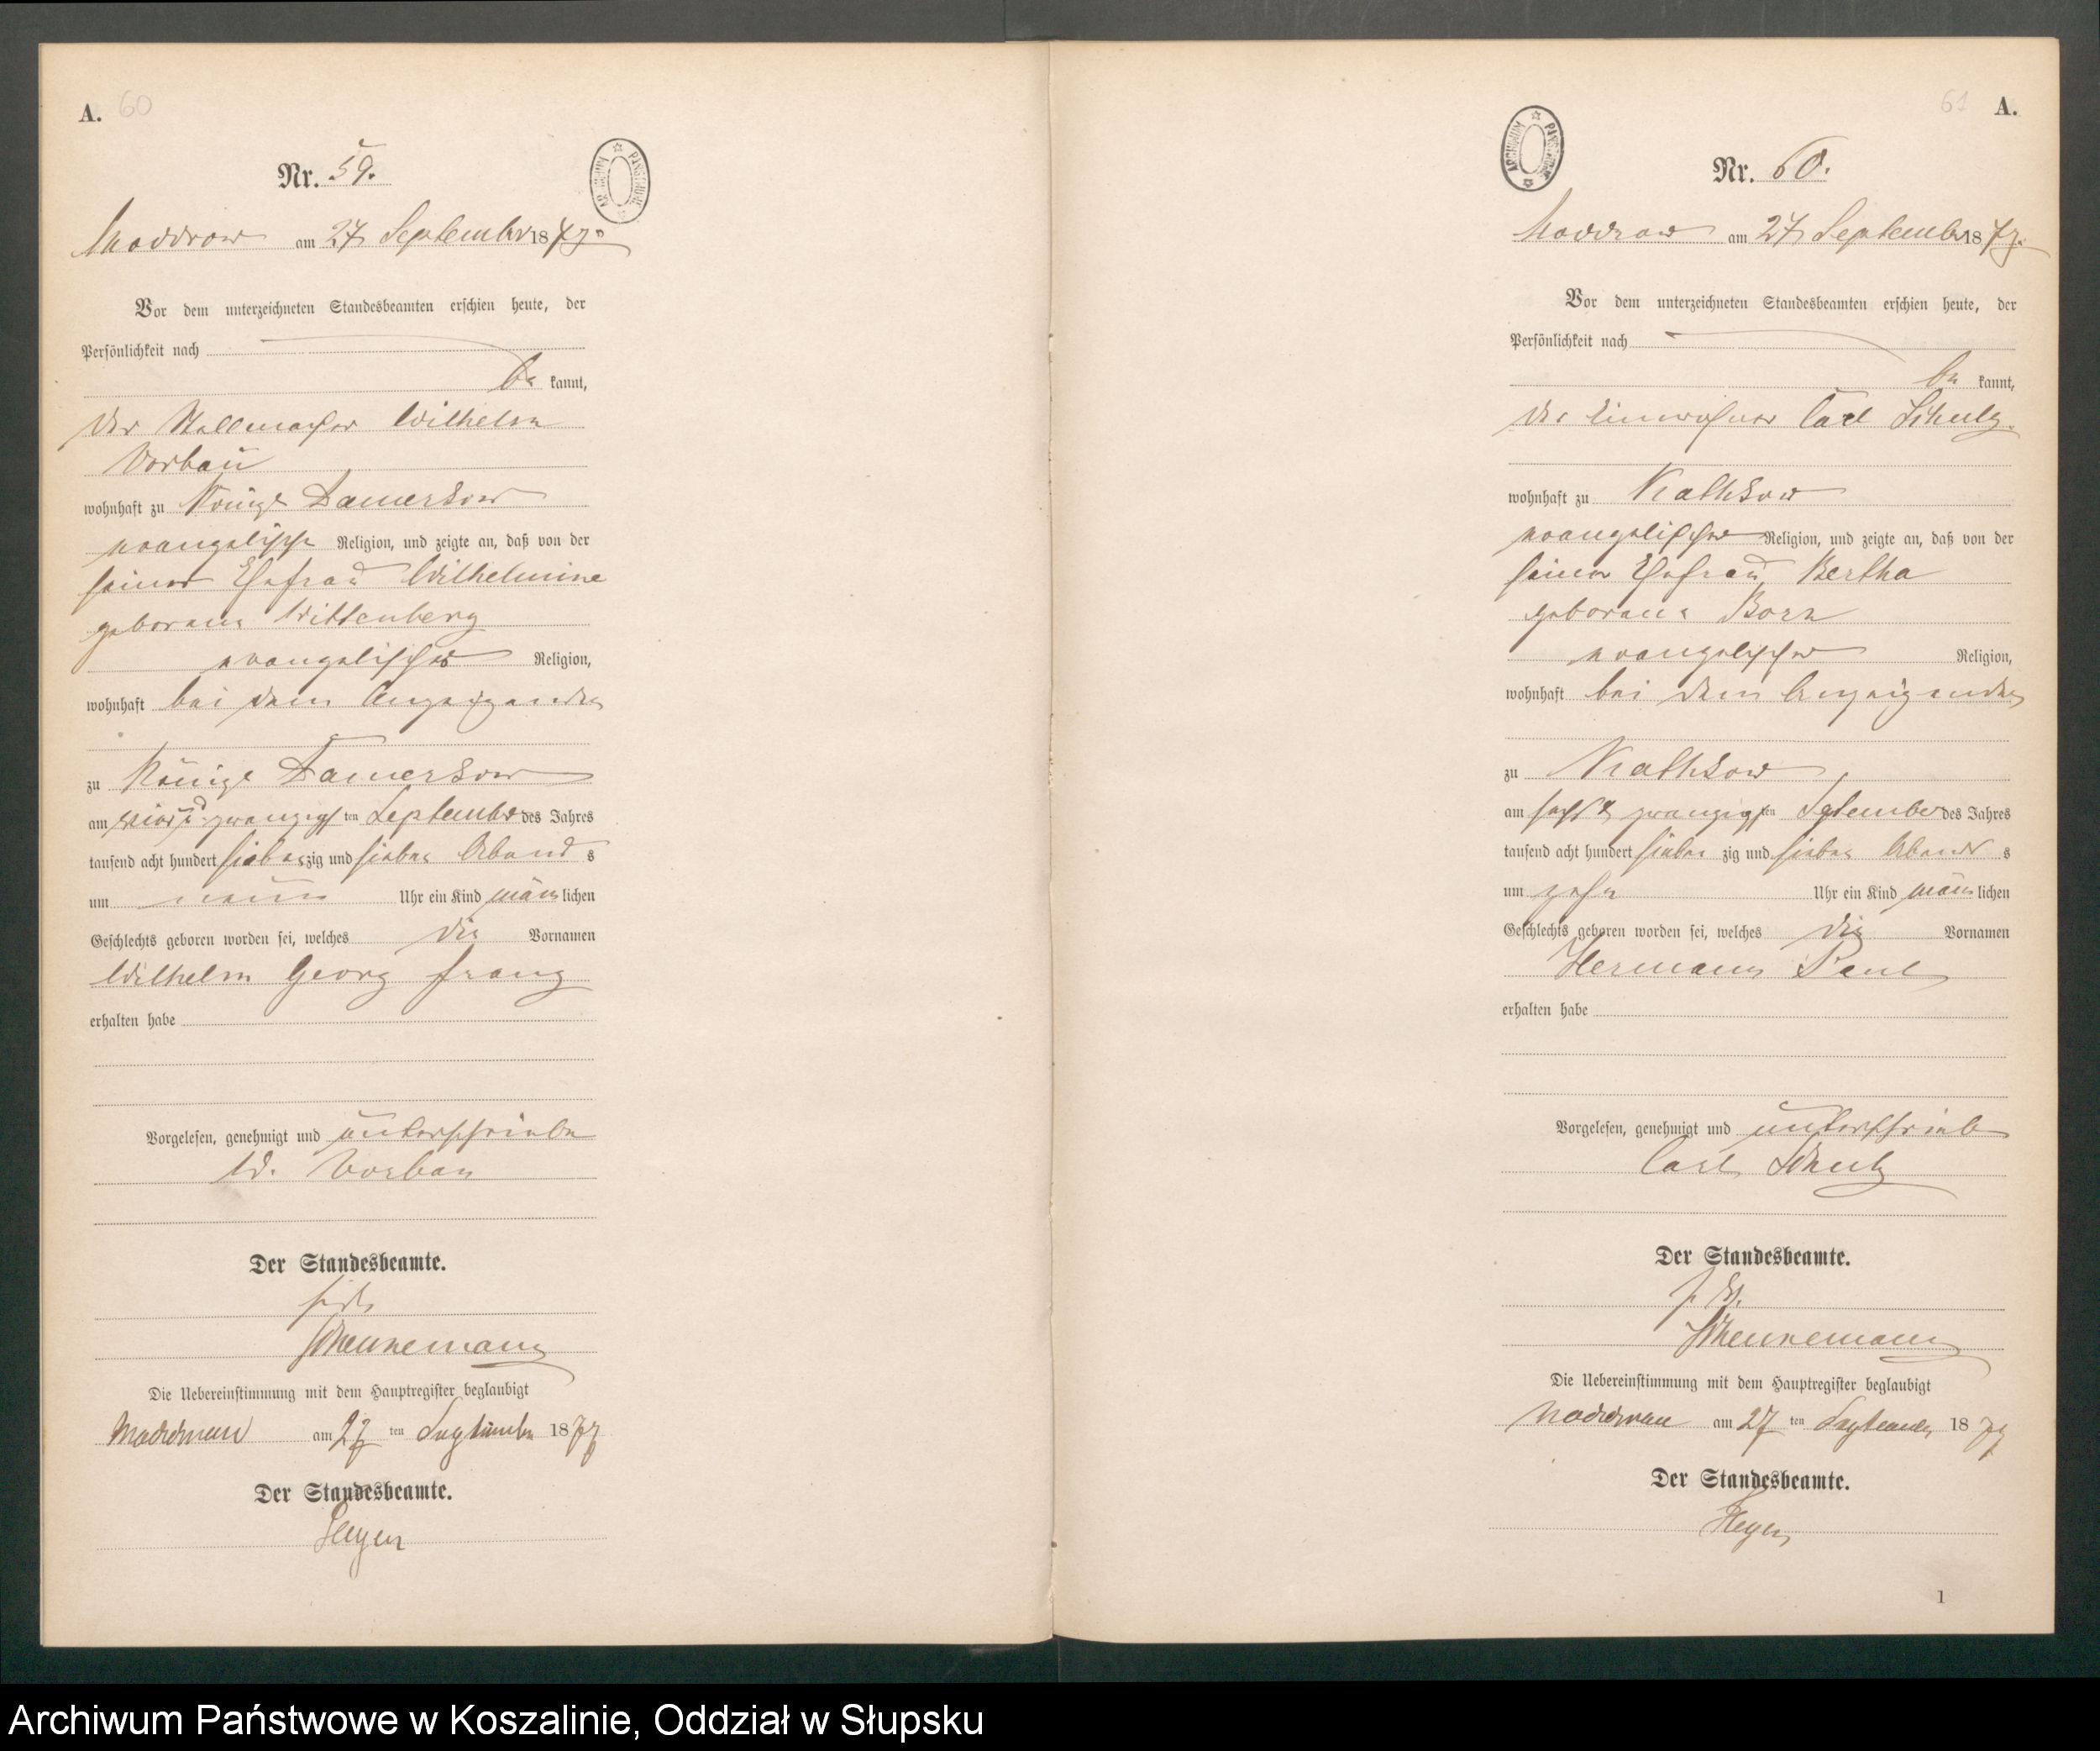 A. 60
Nr. 59.
Moddrow am 27 September 1877.
Vor dem unterzeichneten Standesbeamten erschien heute, der
Persönlichkeit nach
be kannt,
der Stellmacher Wilhelm
Vorbau
wohnhaft zu Königl Damerkow
evangelischer Religion, und zeigte an, daß von der
seiner Ehefrau Wilhelmine
geborene Wittenberg
evangelischer Religion,
wohnhaft bei dem Anzeigenden
zu Königl Damerkow
am vier u zwanzigsten September des Jahres
tausend acht hundert sieben zig und sieben Abend s
um neun Uhr ein Kind männ lichen
Geschlechts geboren worden sei, welches die Vornamen
Wilhelm Georg Franz
erhalten habe
Vorgelesen, genehmigt und unterschrieben
W. Vorbau
Der Standesbeamte.
Schennemann
Die Uebereinstimmung mit dem Hauptregister beglaubigt
Moddrow am 27 ten September 1877
Der Standesbeamte.
Heyer
61 A.
Nr. 60.
Moddrow am 27 September 1877.
Vor dem unterzeichneten Standesbeamten erschien heute, der
Persönlichkeit nach
be kannt,
der Einwohner Carl Schulz
wohnhaft zu Kathkow
evangelischer Religion, und zeigte an, daß von der
seiner Ehefrau, Bertha
geborene Born
evangelischer Religion,
wohnhaft bei dem Anzeigenden
zu Kathkow
am sechs & zwanzigsten September des Jahres
tausend acht hundert sieben zig und sieben Abend s
um zehn Uhr ein Kind männ lichen
Geschlechts geboren worden sei, welches die Vornamen
Hermann Paul
erhalten habe
Vorgelesen, genehmigt und unterschrieben
Carl Schulz
Der Standesbeamte.
Schennemann
Die Uebereinstimmung mit dem Hauptregister beglaubigt
Moddrow am 27 ten September 1877
Der Standesbeamte.
Heyer
1
Archiwum Państwowe w Koszalinie, Oddział w Słupsku